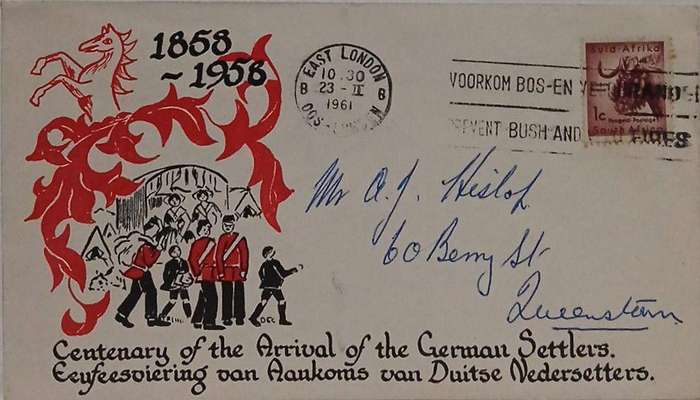 1858
~1958
EAST LONDON
10.30
B 23 - II B
1961
OOS-
VOORKOM BOS-EN
PREVENT BUSH AND FIRES
Suid-Afrika
1c
Posgeld Postage
South Africa
Mr A. J. Hislop
60 Berry St
Queenstown
Centenary of the Arrival of the German Settlers.
Eeufeesviering van Aankoms van Duitse Nedersetters.